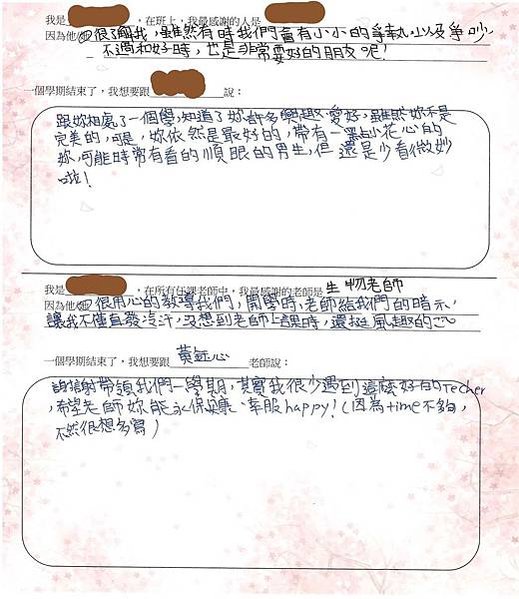 我是　　　　，在班上，我最感謝的人是
因為他(她)很了解我，雖然有時我們會有小小的爭執以及爭吵，
不過和好時，也是非常要好的朋友呢！
一個學期結束了，我想要跟　　　說：
跟妳相處了一個學，知道了妳許多興趣、愛好，雖然妳不是
完美的，可是，妳依然是最好的，帶有一點小花心的
妳，可能時常有看的順眼的男生，但還是少看微妙
啦！
我是　　　　，在所有任課老師中，我最感謝的老師是生物老師
因為他(她)很用心的教導我們，開學時，老師給我們的暗示，
讓我不僅直發冷汗，沒想到老師上課時，還挺風趣的
一個學期結束了，我想要跟 黃鈺心 老師說：
謝謝帶領我們一學期，其實我很少遇到這麼好的Techer
，希望老師妳能永保健康、幸服happy！(因為time不夠，
不然很想多寫)